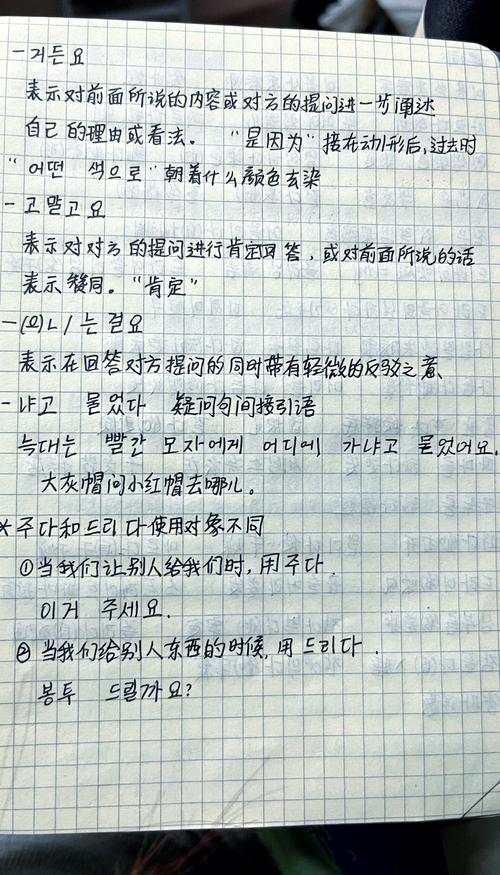 -거든요
表示对前面所说的内容或对方的提问进一步阐述
自己的理由或看法。 "是因为" 接在动/形后,过去时
"어떤 색으로" 朝着什么颜色去染
-고말고요
表示对对方的提问进行肯定回答,或对前面所说的话
表示赞同。"肯定"
-(으)ㄴ/는걸요
表示在回答对方提问的同时带有轻微的反驳之意、
-냐고 묻었다 疑问句间接引语
늑대는 빨간 모자에게 어디에 가냐고 묻었어요.
大灰帽问小红帽去哪儿。
*주다和드리다使用对象不同
①当我们让别人给我们时,用주다.
이거 주세요.
②当我们给别人东西的时候,用드리다.
봉투 드릴까요?